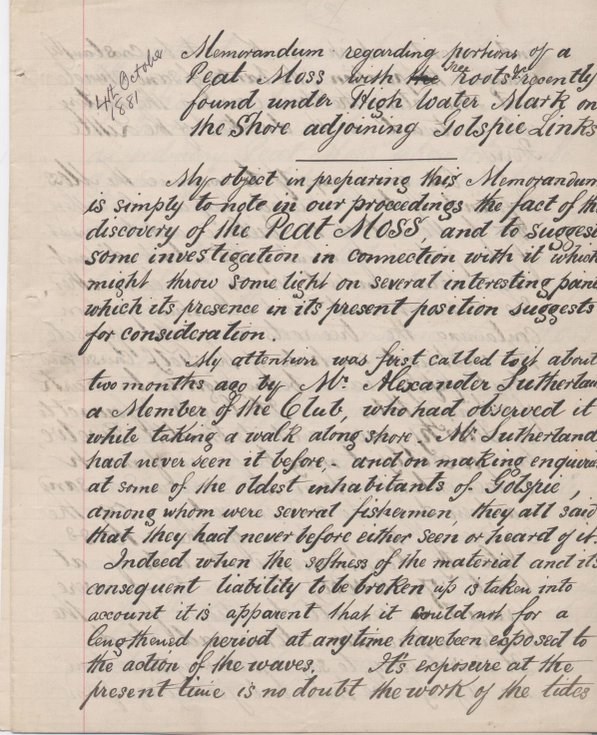 4th October
1881
Memorandum regarding portions of a
Peat Moss with the Tree Roots &c recently
found under High Water Mark on
the Shore adjoining Golspie Links
My object in preparing this Memorandum
is simply to note in our proceedings the fact of th
discovery of the Peat Moss and to suggest
some investigation in connection with it which
might throw some light on several interesting poin
which its presence in its present position suggests
for consideration.
My attention was first called to it about
two months ago by Mr. Alexander Sutherlan
a Member of the Club, who had observed it
while taking a walk along shore. Mr. Sutherland
had never seen it before, - and on making enquiri
at some of the oldest inhabitants of Golspie,
among whom were several fishermen, they all said
that they had never before either seen or heard of it.
Indeed when the softness of the material and its
consequent liability to be broken up is taken into
account it is apparent that it could not for a
lengthened period at any time have been exposed to
the action of the waves. It's exposure at the
present time is no doubt the work of the tides